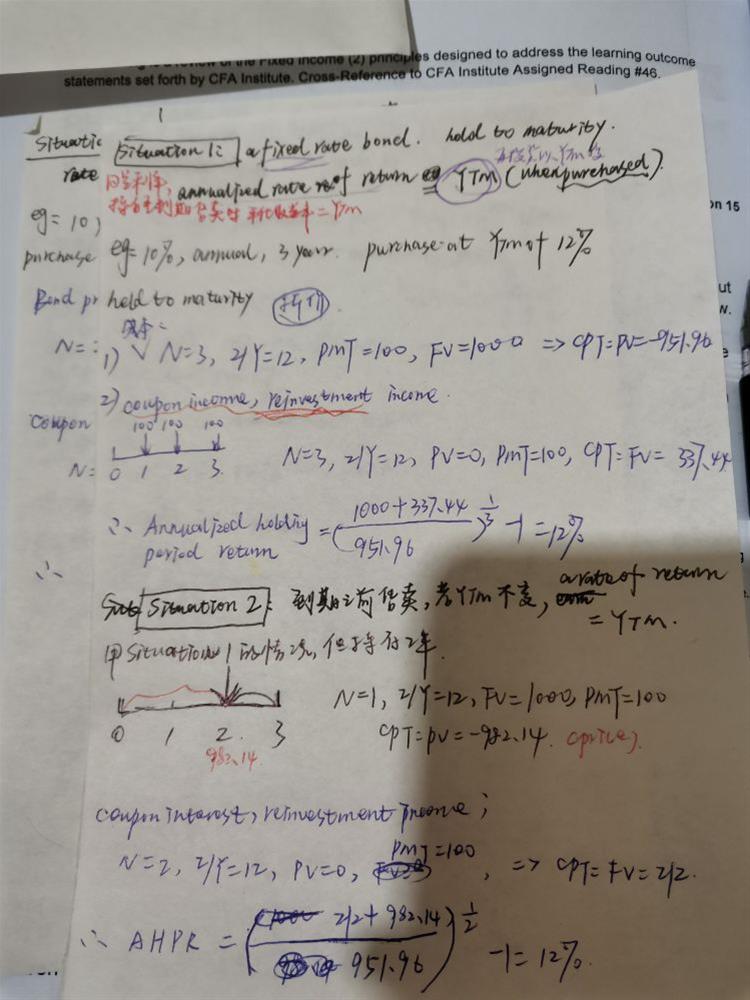 g is a review of the Fixed Income (2) principles designed to address the learning outcome
statements set forth by CFA Institute. Cross-Reference to CFA Institute Assigned Reading #46.
Situatic
Situation 1: a fixed rate bond. hold to maturity.
rate
annualized rate of return = YTM (when purchased).
持有至到期 = YTM
on 15
eg = 10,
purchase
eg = 10%, annual, 3 year. purchase at YTM of 12%
Bond pr
hold to maturity 折价
ut
w.
N=:
1) N=3, I/Y=12, PMT=100, FV=1000 => CPT=PV=-951.96
2) coupon income, reinvestment income.
Coupon
100 100 100
0 1 2 3
N=
N=3, I/Y=12, PV=0, PMT=100, CPT=FV= 337.44
∴ Annualized holding period return = (1000+337.44 / 951.96)^1/3 -1=12%
∴
Situation 2: 到期之前售卖, 若YTM不变, a rate of return
= YTM.
用Situation 1的情况, 但持有2年.
0 1 2. 3
982.14
N=1, I/Y=12, FV=1000, PMT=100
CPT=PV=-982.14. (price).
coupon interest, reinvestment income;
N=2, I/Y=12, PV=0, PMT=100, => CPT=FV=212.
∴ AHPR = (212+982.14 / 951.96)^1/2 -1=12%.